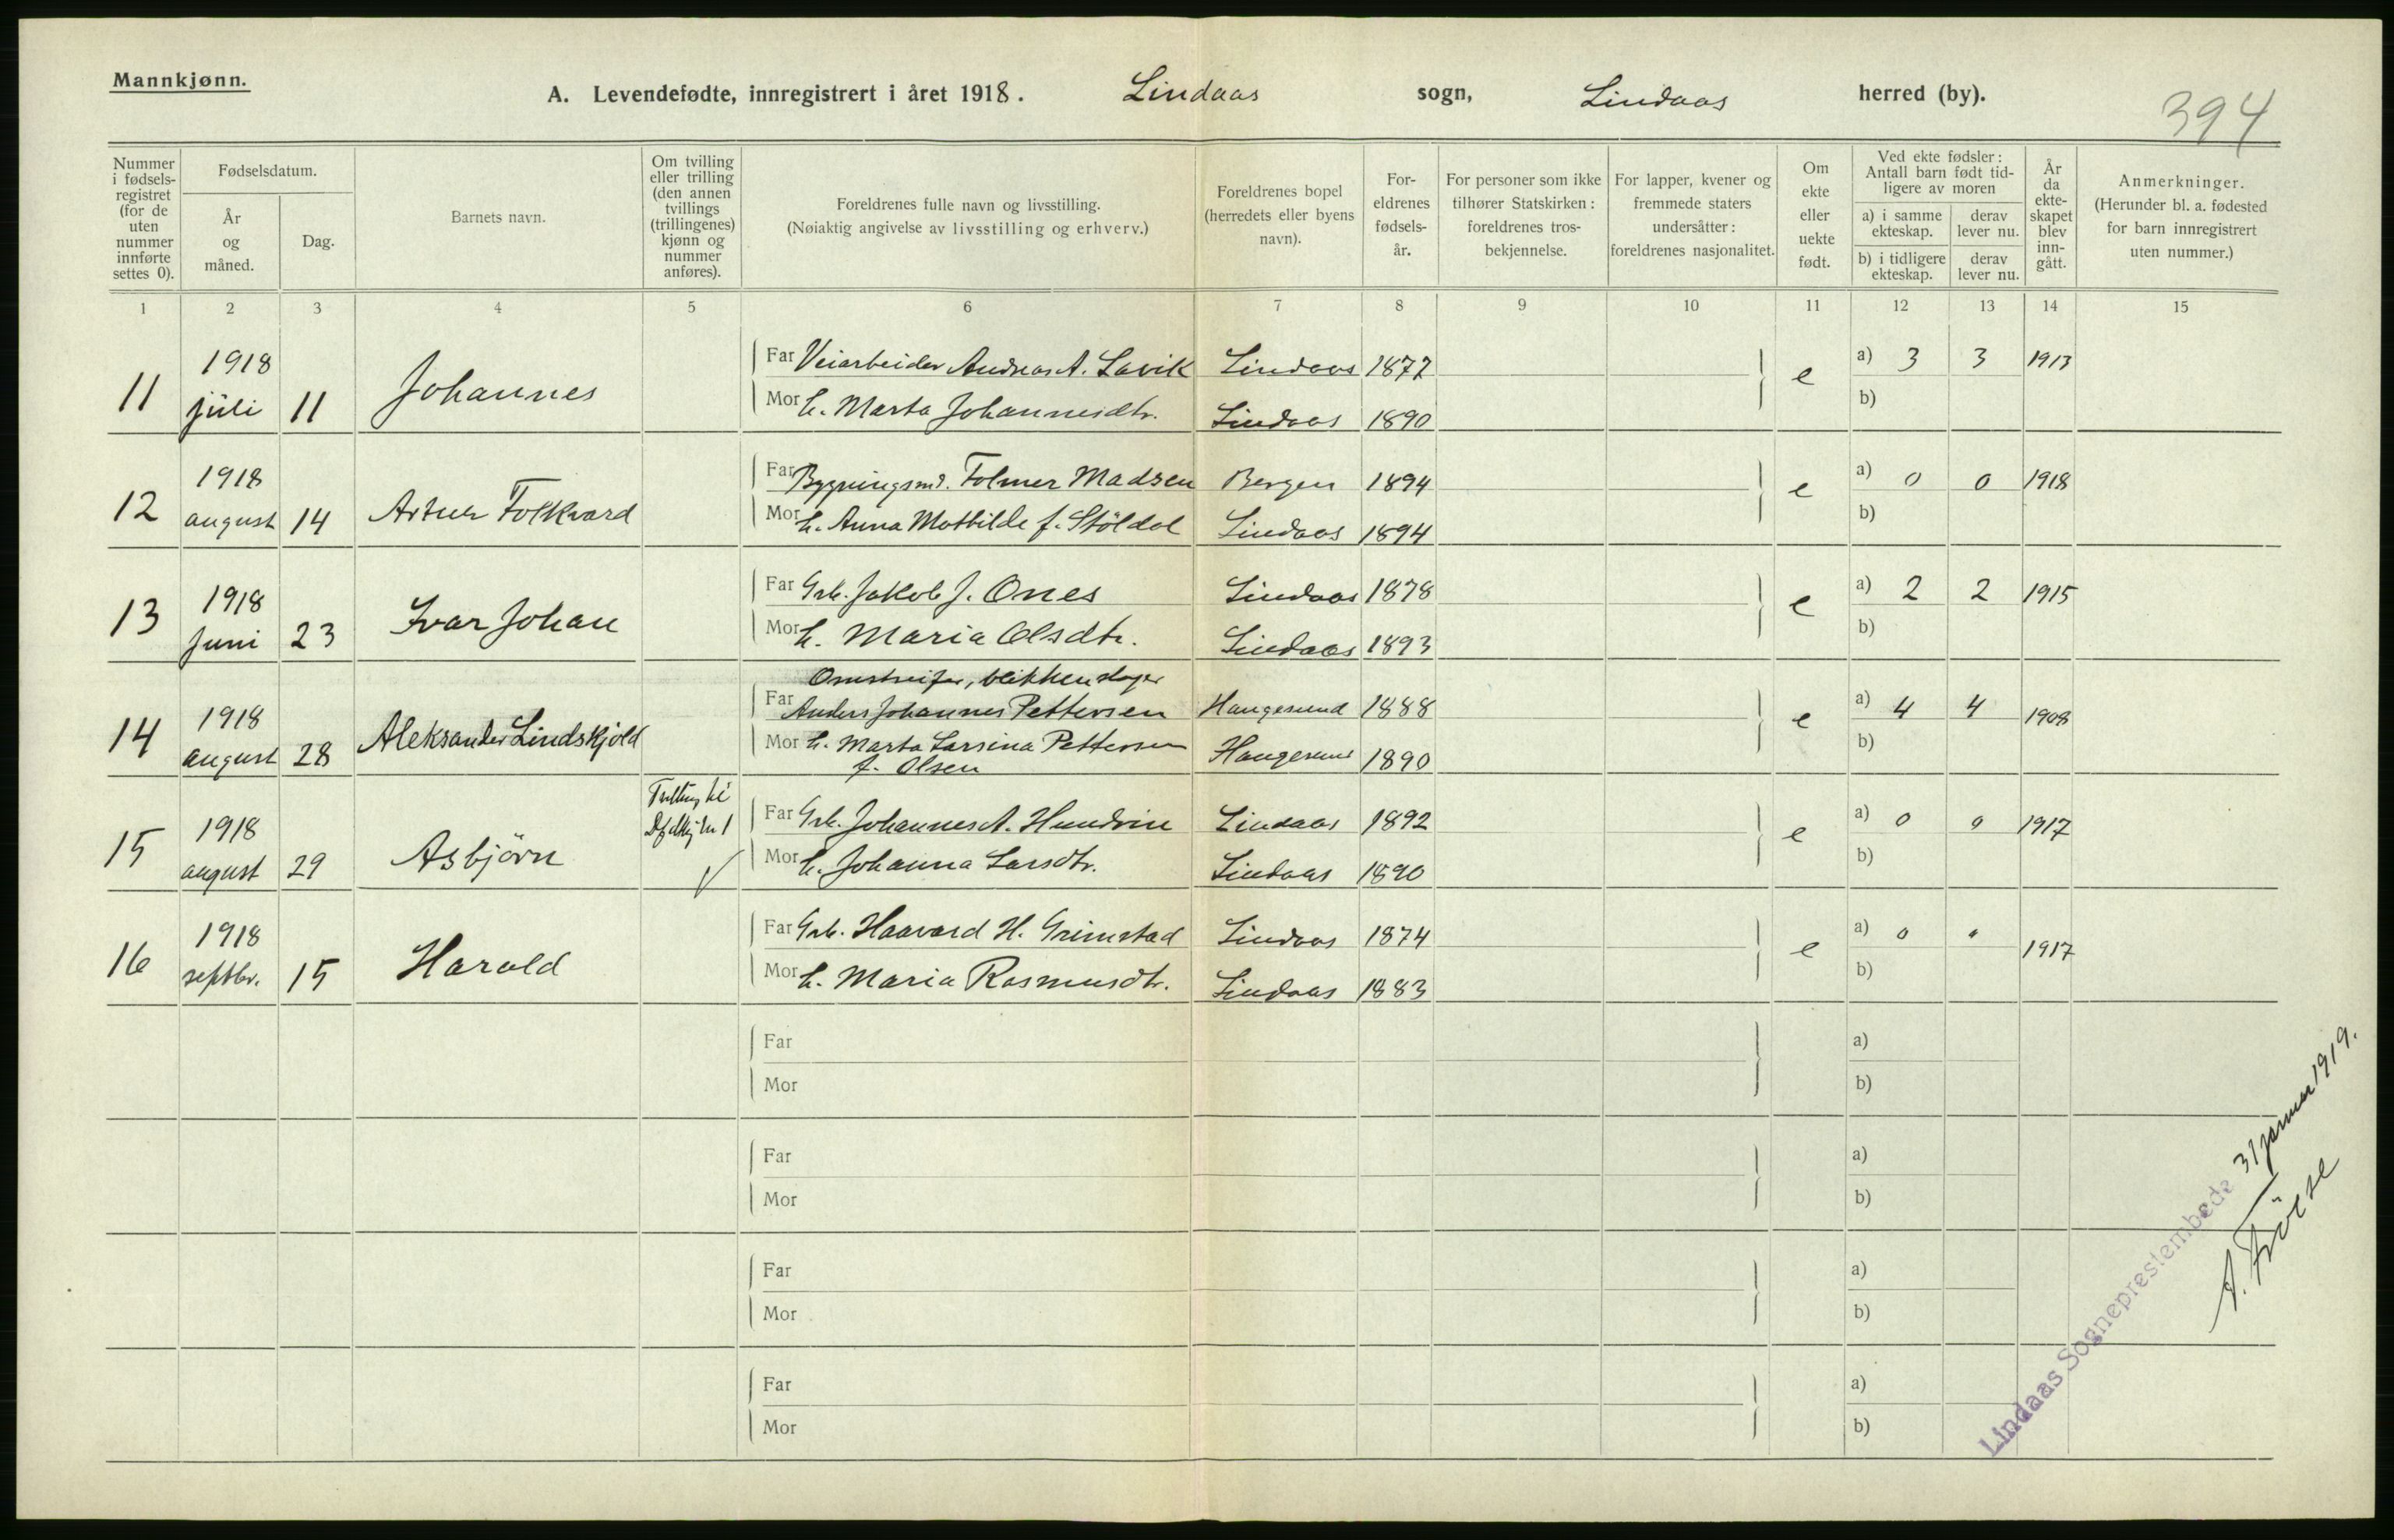 Mannkjønn.
A. Levendefødte, innregistrert i året 1918. Lindaas sogn, Lindaas herred (by).
394
Nummer i fødsels-registret (for de uten nummer innførte settes 0).
Fødselsdatum.
År og måned.
Dag.
Barnets navn.
Om tvilling eller trilling (den annen tvillings (trillingenes) kjønn og nummer anføres).
Foreldrenes fulle navn og livsstilling.
(Nøiaktig angivelse av livsstilling og erhverv.)
Foreldrenes bopel (herredets eller byens navn).
For-eldrenes fødsels-år.
For personer som ikke tilhører Statskirken: foreldrenes tros-bekjennelse.
For lapper, kvener og fremmede staters undersåtter: foreldrenes nasjonalitet.
Om ekte eller uekte født.
Ved ekte fødsler: Antall barn født tid-ligere av moren
a) i samme ekteskap.
derav lever nu.
b) i tidligere ekteskap.
derav lever nu.
År da ekte-skapet blev inn-gått.
Anmerkninger.
(Herunder bl. a. fødested for barn innregistrert uten nummer.)
1 2 3 4 5 6 7 8 9 10 11 12 13 14 15
11 1918 juli 11 Johannes
Far Veiarbeider Andreas A. Lavik Lindaas 1877 e a) 3 3 1913
Mor h. Marta Johannesdtr. Lindaas 1890 b)
12 1918 august 14 Artur Folkvard
Far Bygningsm. Folmer Madsen Bergen 1894 e a) 0 0 1918
Mor h. Anna Mathilde f. Stöldal Lindaas 1894 b)
13 1918 Juni 23 Ivar Johan
Far Grb. Jakob J. Ones Lindaas 1878 e a) 2 2 1915
Mor h. Maria Olsdtr. Lindaas 1893 b)
14 1918 august 28 Aleksander Lindskjold
Omstreifer, blikkenslager
Far Anders Johannes Pettersen Haugesund 1888 e a) 4 4 1908
Mor h. Marta Larsina Pettersen Haugesund 1890 b)
f. Olsen
15 1918 august 29 Asbjörn
Far Grb. Johannes A. Hundvin Lindaas 1892 e a) 0 0 1917
Mor h. Johanna Larsdtr. Lindaas 1890 b)
16 1918 septbr. 15 Harald
Far Grb. Haavard H. Grimstad Lindaas 1874 e a) 0 " 1917
Mor h. Maria Rasmusdtr. Lindaas 1883 b)
Far a)
Mor b)
Far a)
Mor b)
Far a)
Mor b)
Far a)
Mor b)
Lindaas Sogneprestembede 31 januar 1919.